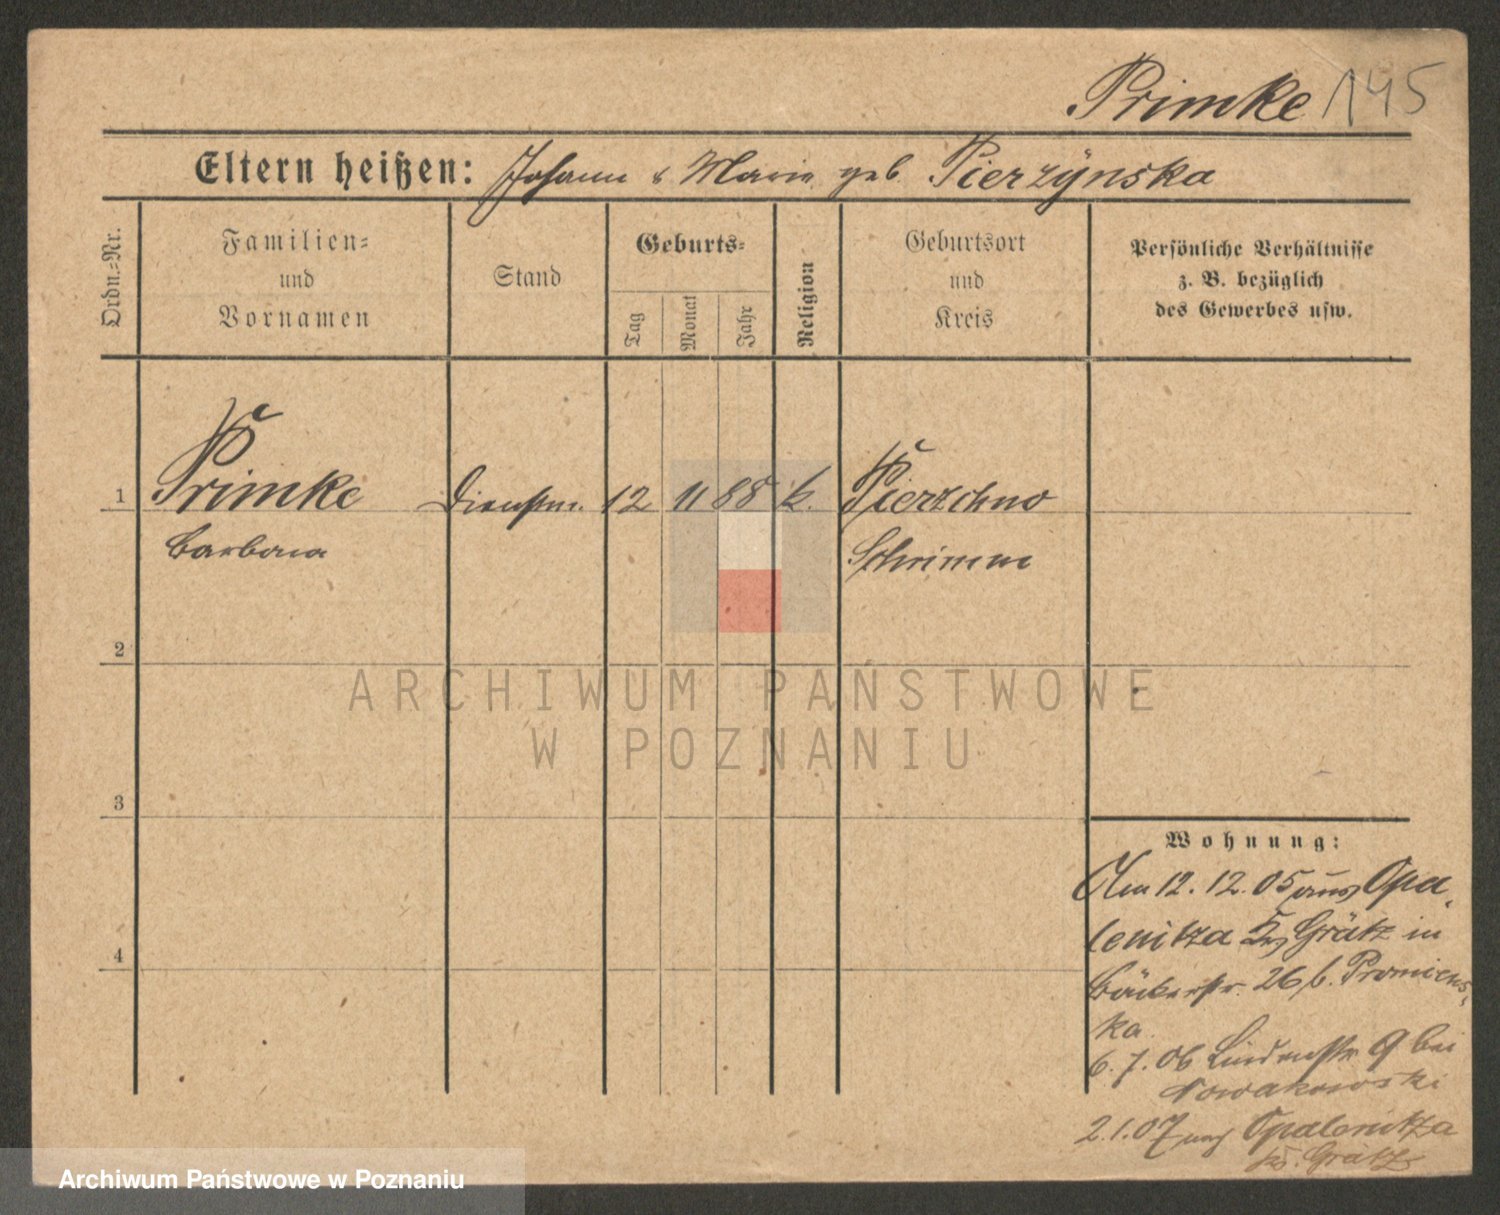 Primke 145
Eltern heißen: Johann & Marie geb. Pierzynska
Ordn.=Nr.
Familien=
und
Vornamen
Stand
Geburts=
Tag
Monat
Jahr
Religion
Geburtsort
und
Kreis
Persönliche Verhältnisse
z. B. bezüglich
des Gewerbes usw.
1 Primke Dienstm. 12 11 88 k. Pierzchno
Barbara Schrimm
2
ARCHIWUM PAŃSTWOWE
W POZNANIU
3
Wohnung:
Am 12.12.05 aus Opa-
lenitza Kr. Grätz in
Bäckerstr. 26 b. Promiens-
ka.
4
6.7.06 Lindenstr 9 bei
Nowakowski
2.1.07 nach Opalenitza
Kr. Grätz
Archiwum Państwowe w Poznaniu